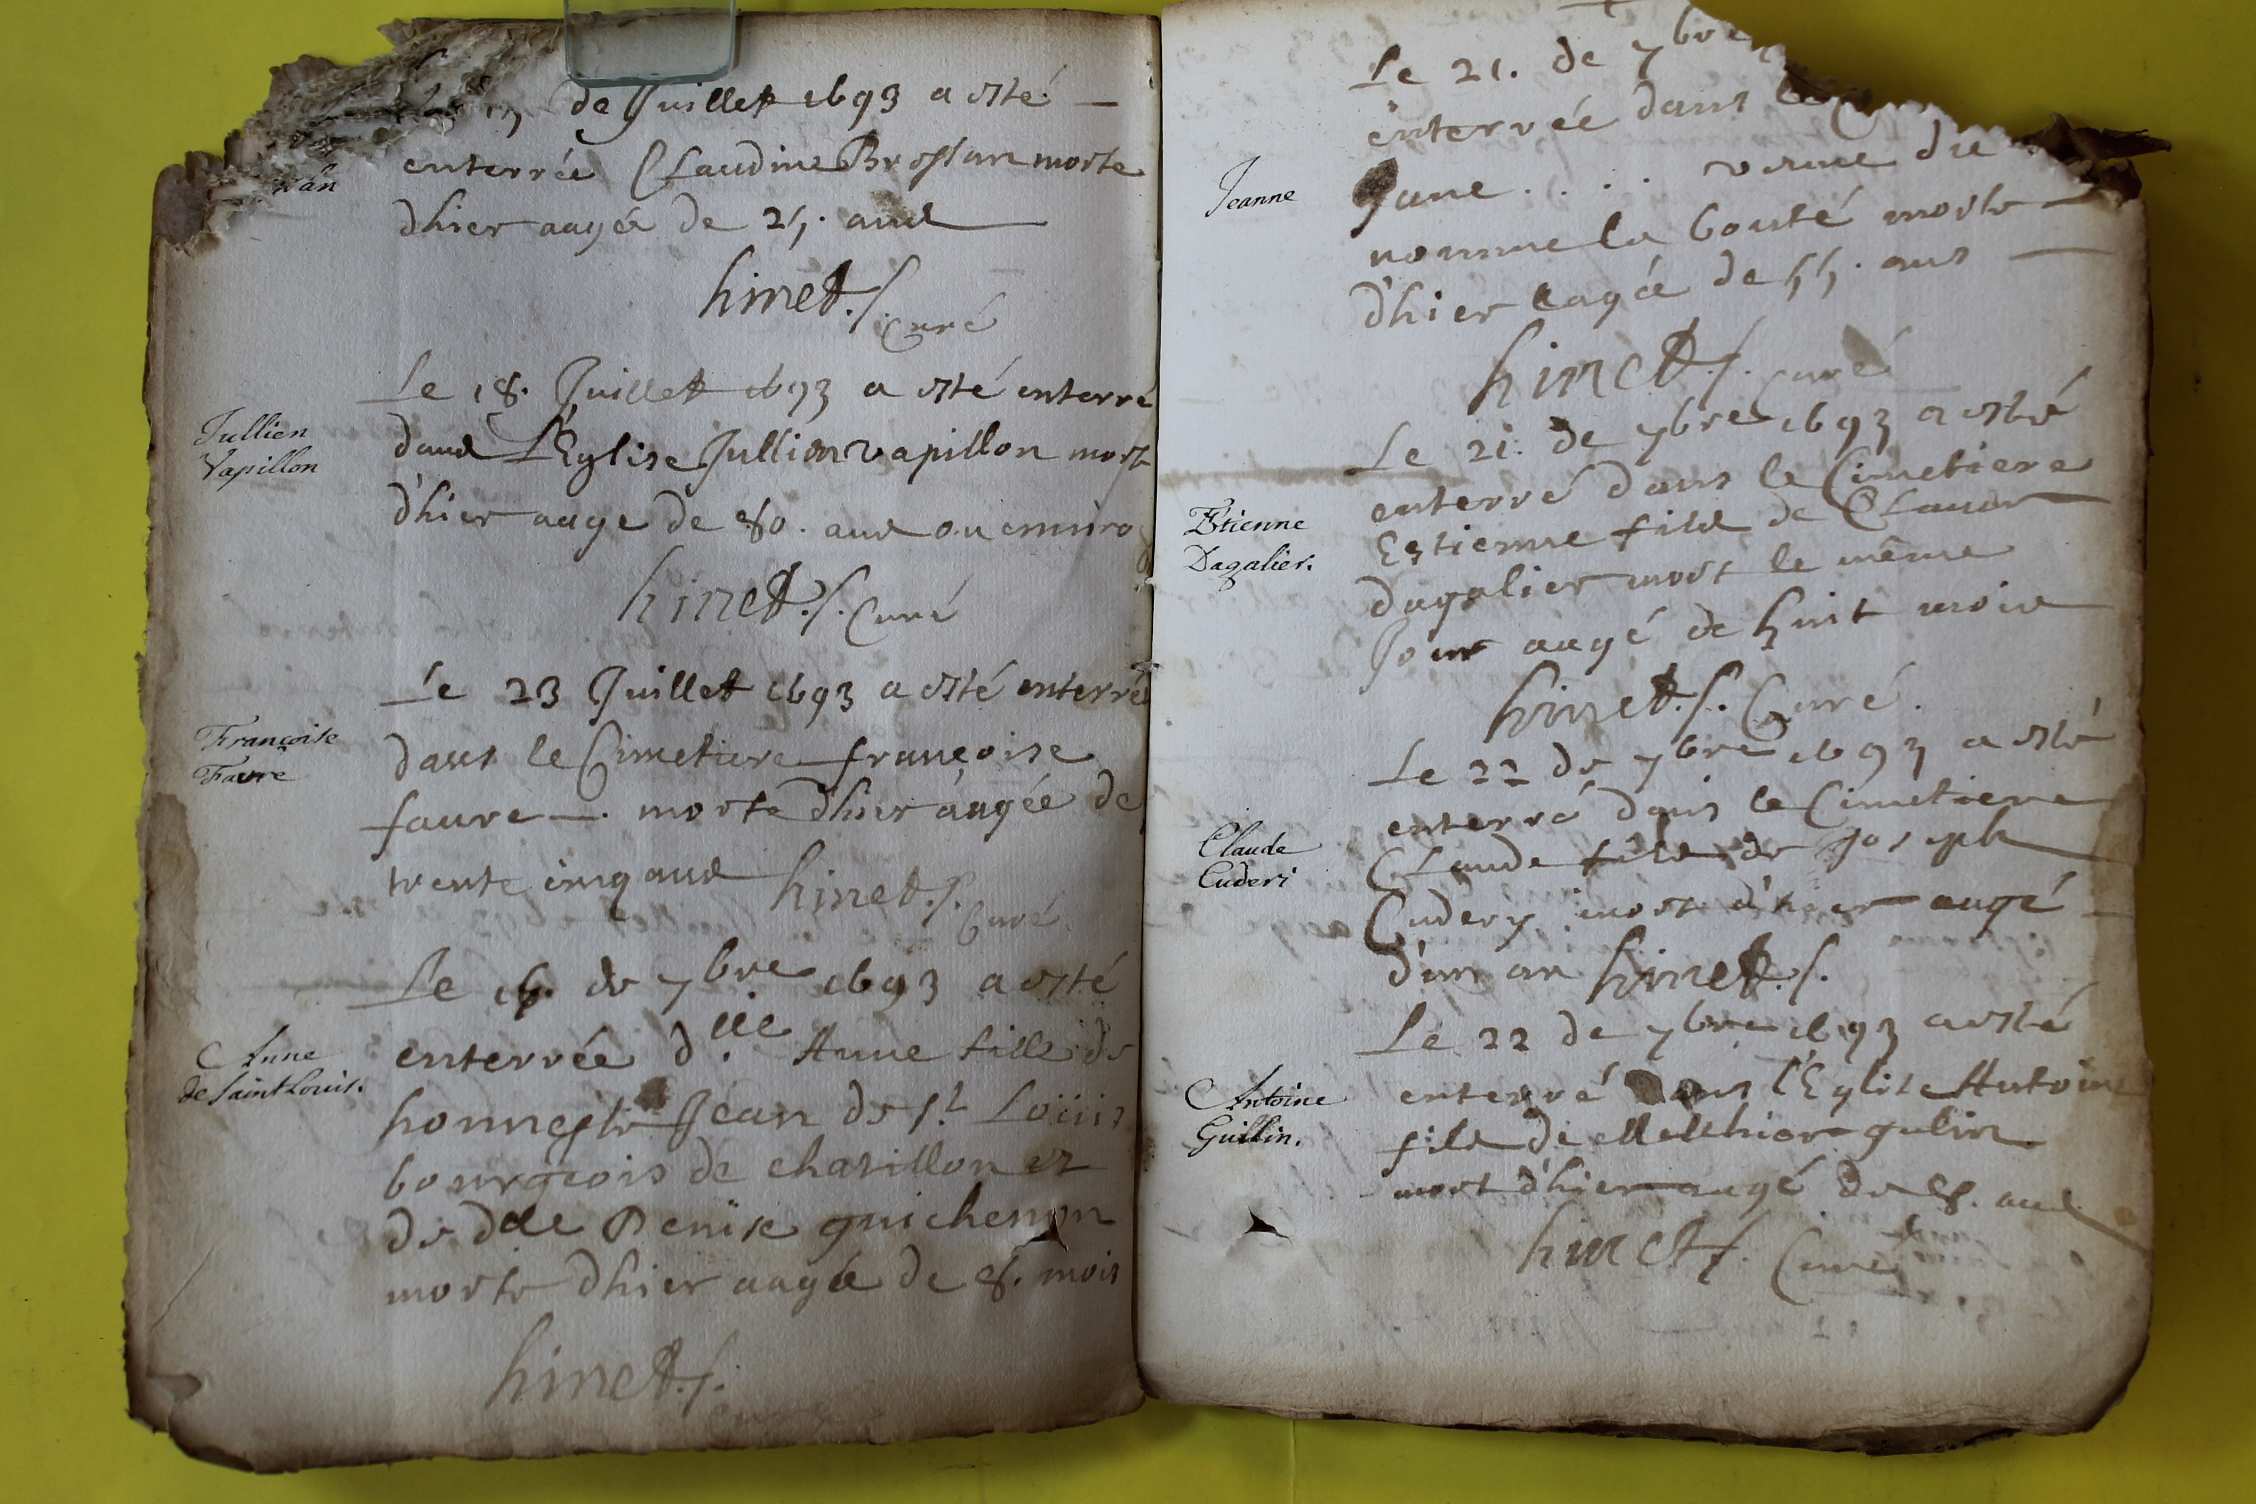 de Juillet 1693 a esté
enterrée Claudine Brossan morte
dhier aagée de 25. ans
hinet.
Curé
Le 18. Juillet 1693 a esté enterré
Jullien
Vapillon
dans L'Eglise Jullien vapillon mort
d'hier aage de 80. ans ou enuiron
hinet. Curé
Le 23 Juillet 1693 a esté enterrée
Françoise
Favre
dans le Cimetiere françoise
faure morte d'hier aagée de
trente cinq ans hinet.
Curé
Le 16. de 7bre 1693 a esté
Anne
de Saint Louis.
enterrée d.lle Anne fille de
honneste Jean de st. Loüis
bourgeois de chatillon et
de dlle Denise guichenon
morte dhier aagée de 8. mois
hinet.
Le 21. de 7bre
enterrée dans le
Jeanne
Jane . . . . veuve du
nomme la bonté morte
d'hier aagée de 55. ans
hinet. Curé
Le 21. de 7bre 1693 a esté
enterré dans le Cimetiere
Etienne
Dagalier.
Estienne fils de Claude
dagalier mort le même
Jour aagé de huit mois
hinet. Curé.
Le 22 de 7bre 1693 a esté
enterré dans le Cimetiere
Claude
Cuderi
Claude fils de Joseph
Cudery mort d'hier aagé
d'un an hinet.
Le 22 de 7bre 1693 a esté
Antoine
Guillin.
enterré dans l'Eglise Antoine
fils de Melchior gulin
mort d'hier aagé de 8. ans
hinet. Curé